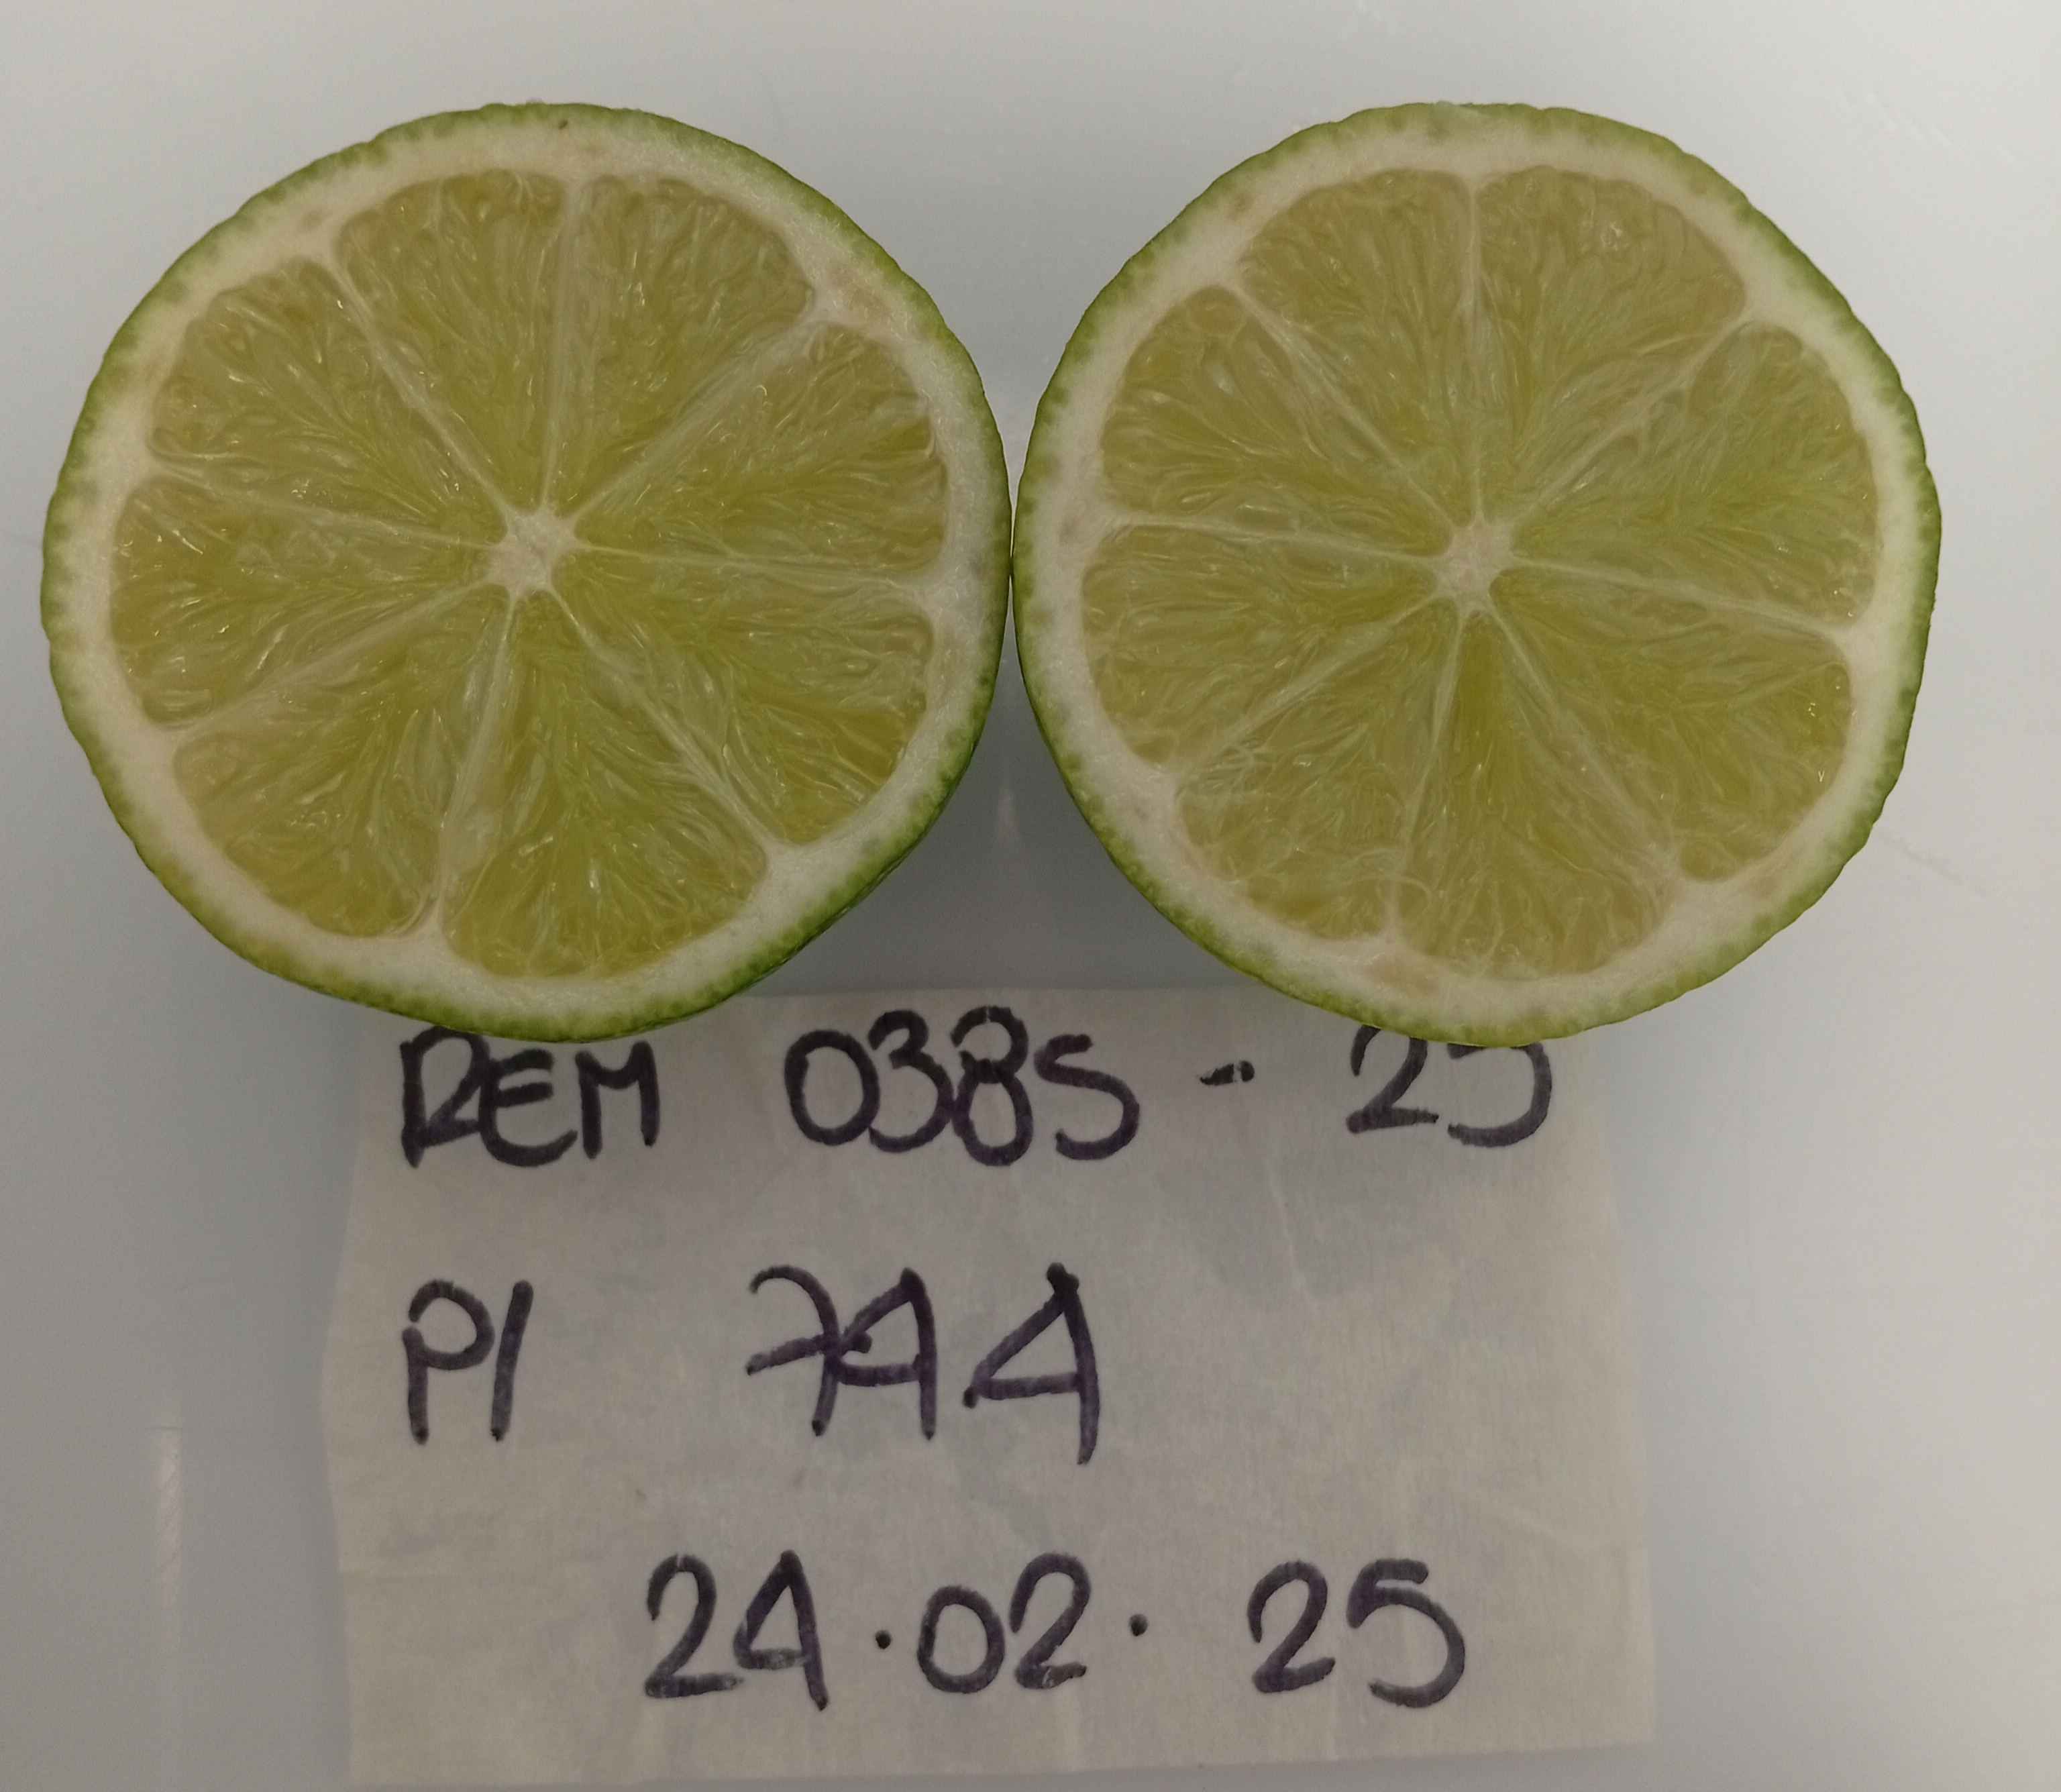 REM 0385 - 25
PI 744
24.02.25